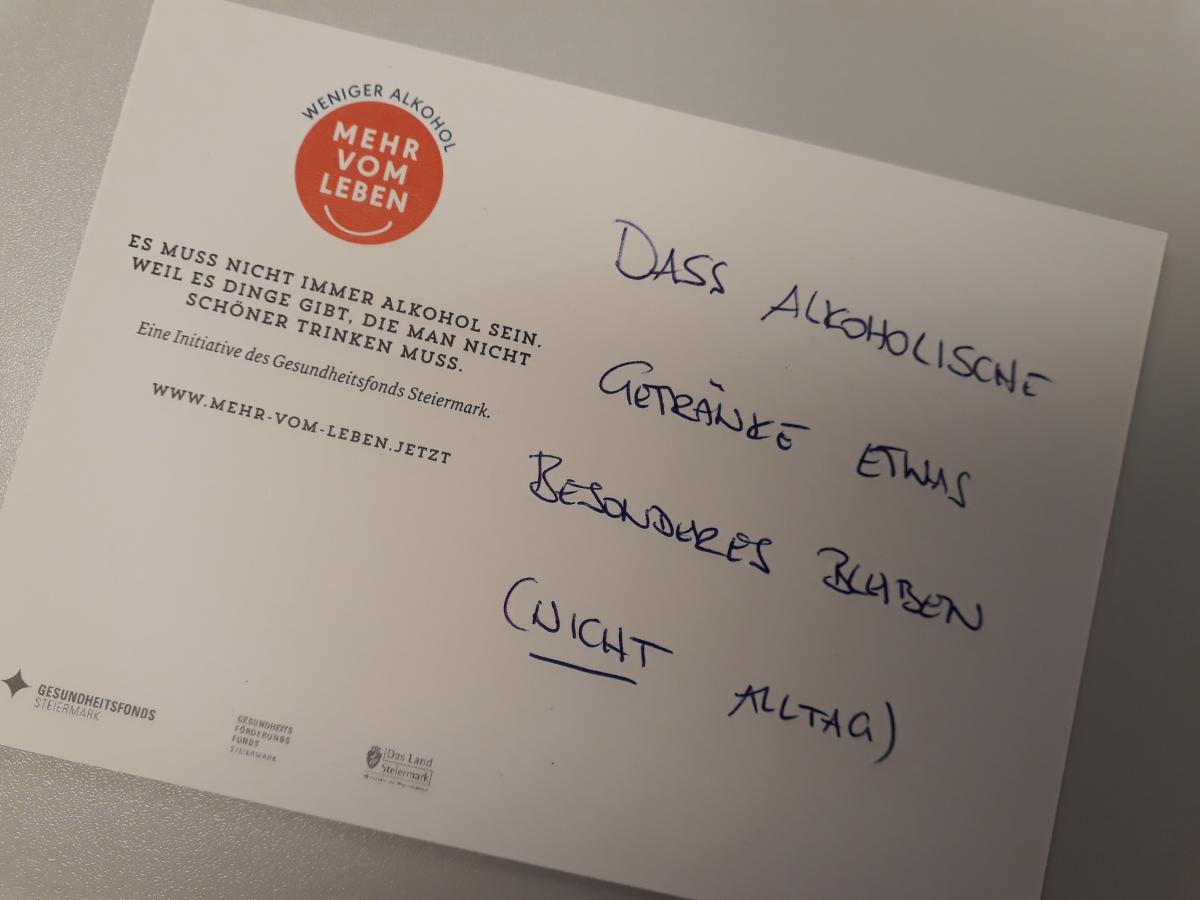 WENIGER ALKOHOL
MEHR
VOM
LEBEN
ES MUSS NICHT IMMER ALKOHOL SEIN.
WEIL ES DINGE GIBT, DIE MAN NICHT
SCHÖNER TRINKEN MUSS.
Eine Initiative des Gesundheitsfonds Steiermark.
WWW.MEHR-VOM-LEBEN.JETZT
DASS ALKOHOLISCHE
GETRÄNKE ETWAS
BESONDERES BLEIBEN
(NICHT ALLTAG)
GESUNDHEITSFONDS
STEIERMARK
GESUNDHEITS
FÖRDERUNGS
FONDS
STEIERMARK
Das Land
Steiermark